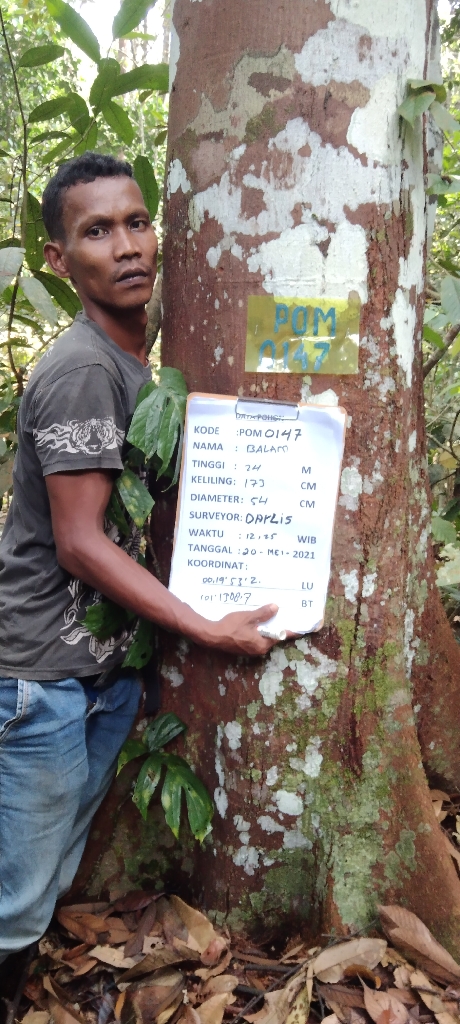 POM
0147
DATA POHON
KODE : POM 0147
NAMA : BALAM
TINGGI : 24 M
KELILING : 173 CM
DIAMETER : 54 CM
SURVEYOR : DARLIS
WAKTU : 12.25 WIB
TANGGAL : 20 - MEI - 2021
KOORDINAT :
00.19'53'2. LU
101'1308.7 BT